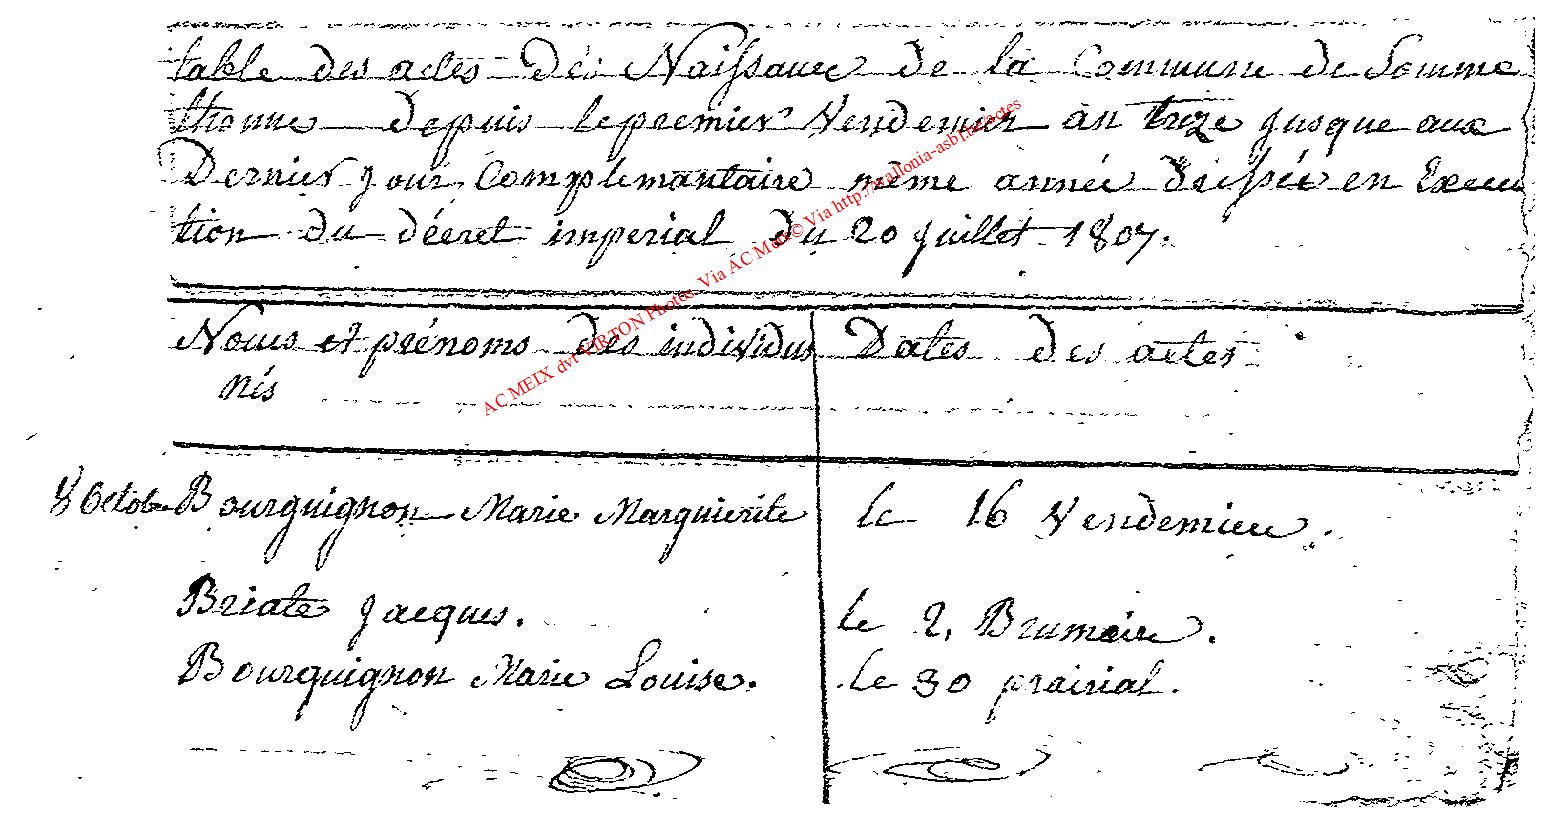 table des actes de Naissance de la Commune de Somme
thonne depuis le premier Vendemier an treze jusque aux
Dernier jour Complemantaire même année dressée en Execu
tion du décret imperial du 20 juillet 1807.
AC MEIX dvt VIRTON Photos Via AC Meix© Via http://wallonia-asbl.be/actes
Noms et prénoms des individus Dates des actes
nis
8 Octobre Bourguignon Marie Marguierite le 16 Vendemiere.
Briate jacques. le 2, Brumaire.
Bourguignon Marie Louise. le 30 prairial.